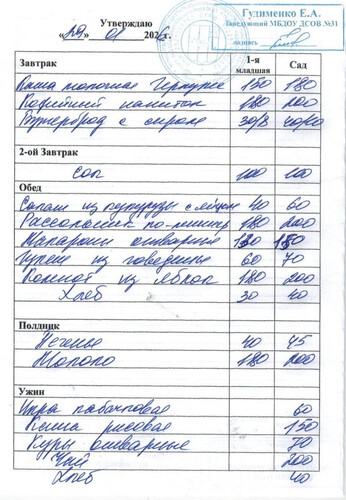 Утверждаю
Гудименко Е.А.
Заведующий МБДОУ ДСОВ №31
подпись
«29» 01 202 г.
Завтрак 1-я младшая Сад
Каша молочная Геркулес 150 180
Кофейный напиток 180 200
Бутерброд с сыром 30/8 40/10
2-ой Завтрак
Сок 100 100
Обед
Салат из кукурузы с яйцом 40 60
Рассольник по-ленингр 180 200
Макароны отварные 130 150
Гуляш из говядины 60 70
Компот из яблок 180 200
Хлеб 30 40
Полдник
Печенье 40 45
Молоко 180 200
Ужин
Икра кабачковая 60
Каша рисовая 150
Куры отварные 70
Чай 200
Хлеб 40